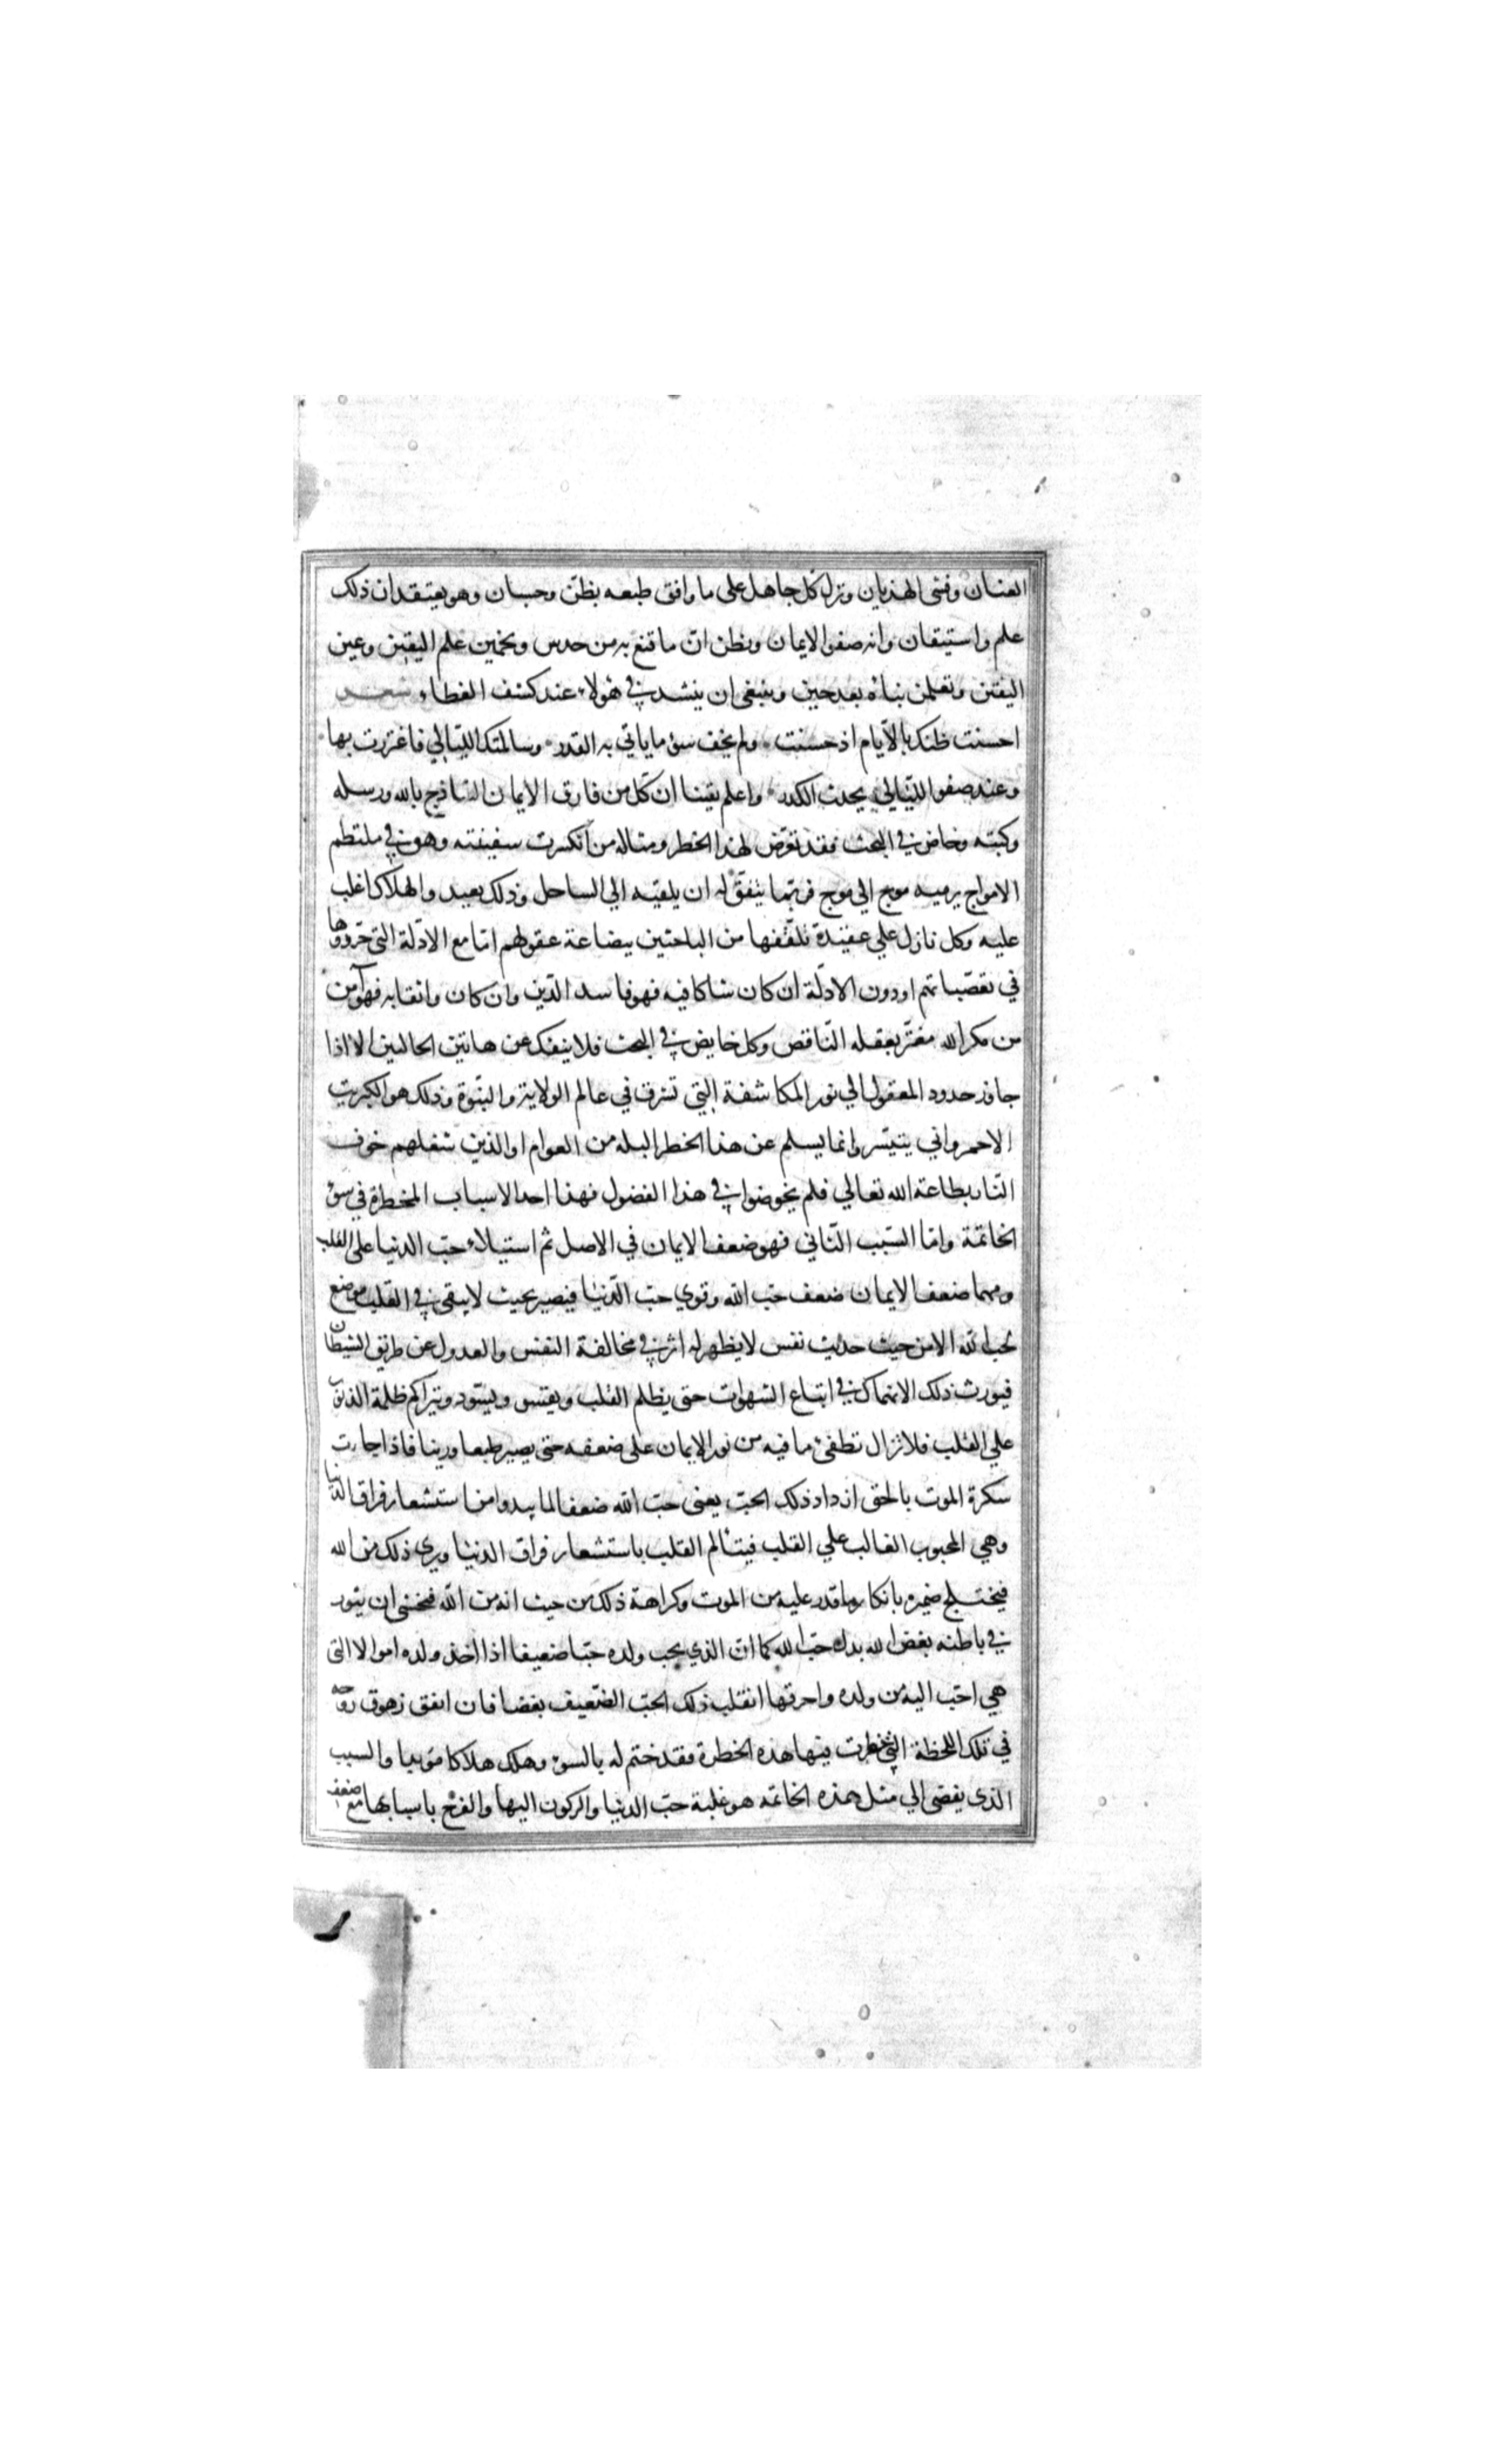 العنان وفشى الهذيان ونزل كل جاهل على ما وافق طبعه بظن وحسبان وهو يعتقد ان ذلك
علم واستيقان وانه صفو الايمان ويظن ان ما قنع به من حدس وتخمين علم اليقين وعين
اليقين وتعلمن نبأه بعد حين وينبغي ان ينشد في هؤلاء عند كشف الغطاء شعر
احسنت ظنك بالايام اذ حسنت ولم تخف سوء ما ياتي به القدر وسالمتك الليالي فاغتررت بها
وعند صفو الليالي يحدث الكدر واعلم يقينا ان كل من فارق الايمان الساذج بالله ورسله
وكتبه وخاض في البحث فقد تعرض لهذا الخطر ومثاله من انكسرت سفينته وهو في ملتطم
الامواج يرميه موج الي موج فربما يتفق له ان يلقيه الي الساحل وذلك بعيد والهلاك اغلب
عليه وكل نازل علي عقيدة تلقفها من الباحثين ببضاعة عقولهم اما مع الادلة التي حرروها
في تعصباتهم او دون الادلة ان كان شاكا فيه فهو فاسد الدين وان كان واثقا به فهو آمن
من مكر الله مغتر بعقله الناقص وكل خايض في البحث فلا ينفك عن هاتين الحالتين الا اذا
جاوز حدود المعقول الي نور المكاشفة التي تشرق في عالم الولاية والنبوة وذلك هو الكبريت
الاحمر واني يتيسر وانما يسلم عن هذا الخطر البله من العوام او الذين شغلهم خوف
النار بطاعة الله تعالي فلم يخوضوا في هذا الفضول فهذا احد الاسباب المخطرة في سوء
الخاتمة واما السبب الثاني فهو ضعف الايمان في الاصل ثم استيلاء حب الدنيا على القلب
ومهما ضعف الايمان ضعف حب الله وقوي حب الدنيا فيصير بحيث لا يبقى في القلب موضع
لحب الله الا من حيث حديث نفس لا يظهر له اثر في مخالفة النفس والعدول عن طريق الشيطان
فيورث ذلك الانهماك في اتباع الشهوات حتى يظلم القلب ويقسو ويسود ويتراكم ظلمة الذنوب
علي القلب فلا تزال تطفئ ما فيه من نور الايمان على ضعفه حتى يصير طبعا ورينا فاذا جاءت
سكرة الموت بالحق ازداد ذلك الحب يعنى حب الله ضعفا لما يبدو من استشعار فراق الدنيا
وهي المحبوب الغالب علي القلب فيتألم القلب باستشعار فراق الدنيا ويرى ذلك من الله
فيختلج ضميره بانكار ما قدر عليه من الموت وكراهة ذلك من حيث انه من الله فيخشى ان يثور
في باطنه بغض الله بدل حب الله كما ان الذي يحب ولده حبا ضعيفا اذا اخذ ولده امواله التى
هي احب اليه من ولده واحرقها انقلب ذلك الحب الضعيف بغضا فان اتفق زهوق روحه
في تلك اللحظة التي خطرت فيها هذه الخطرة فقد ختم له بالسوء وهلك هلاكا مؤبدا والسبب
الذي يفضى الي مثل هذه الخاتمه هو غلبة حب الدنيا والركون اليها والفرح باسبابها مع ضعف